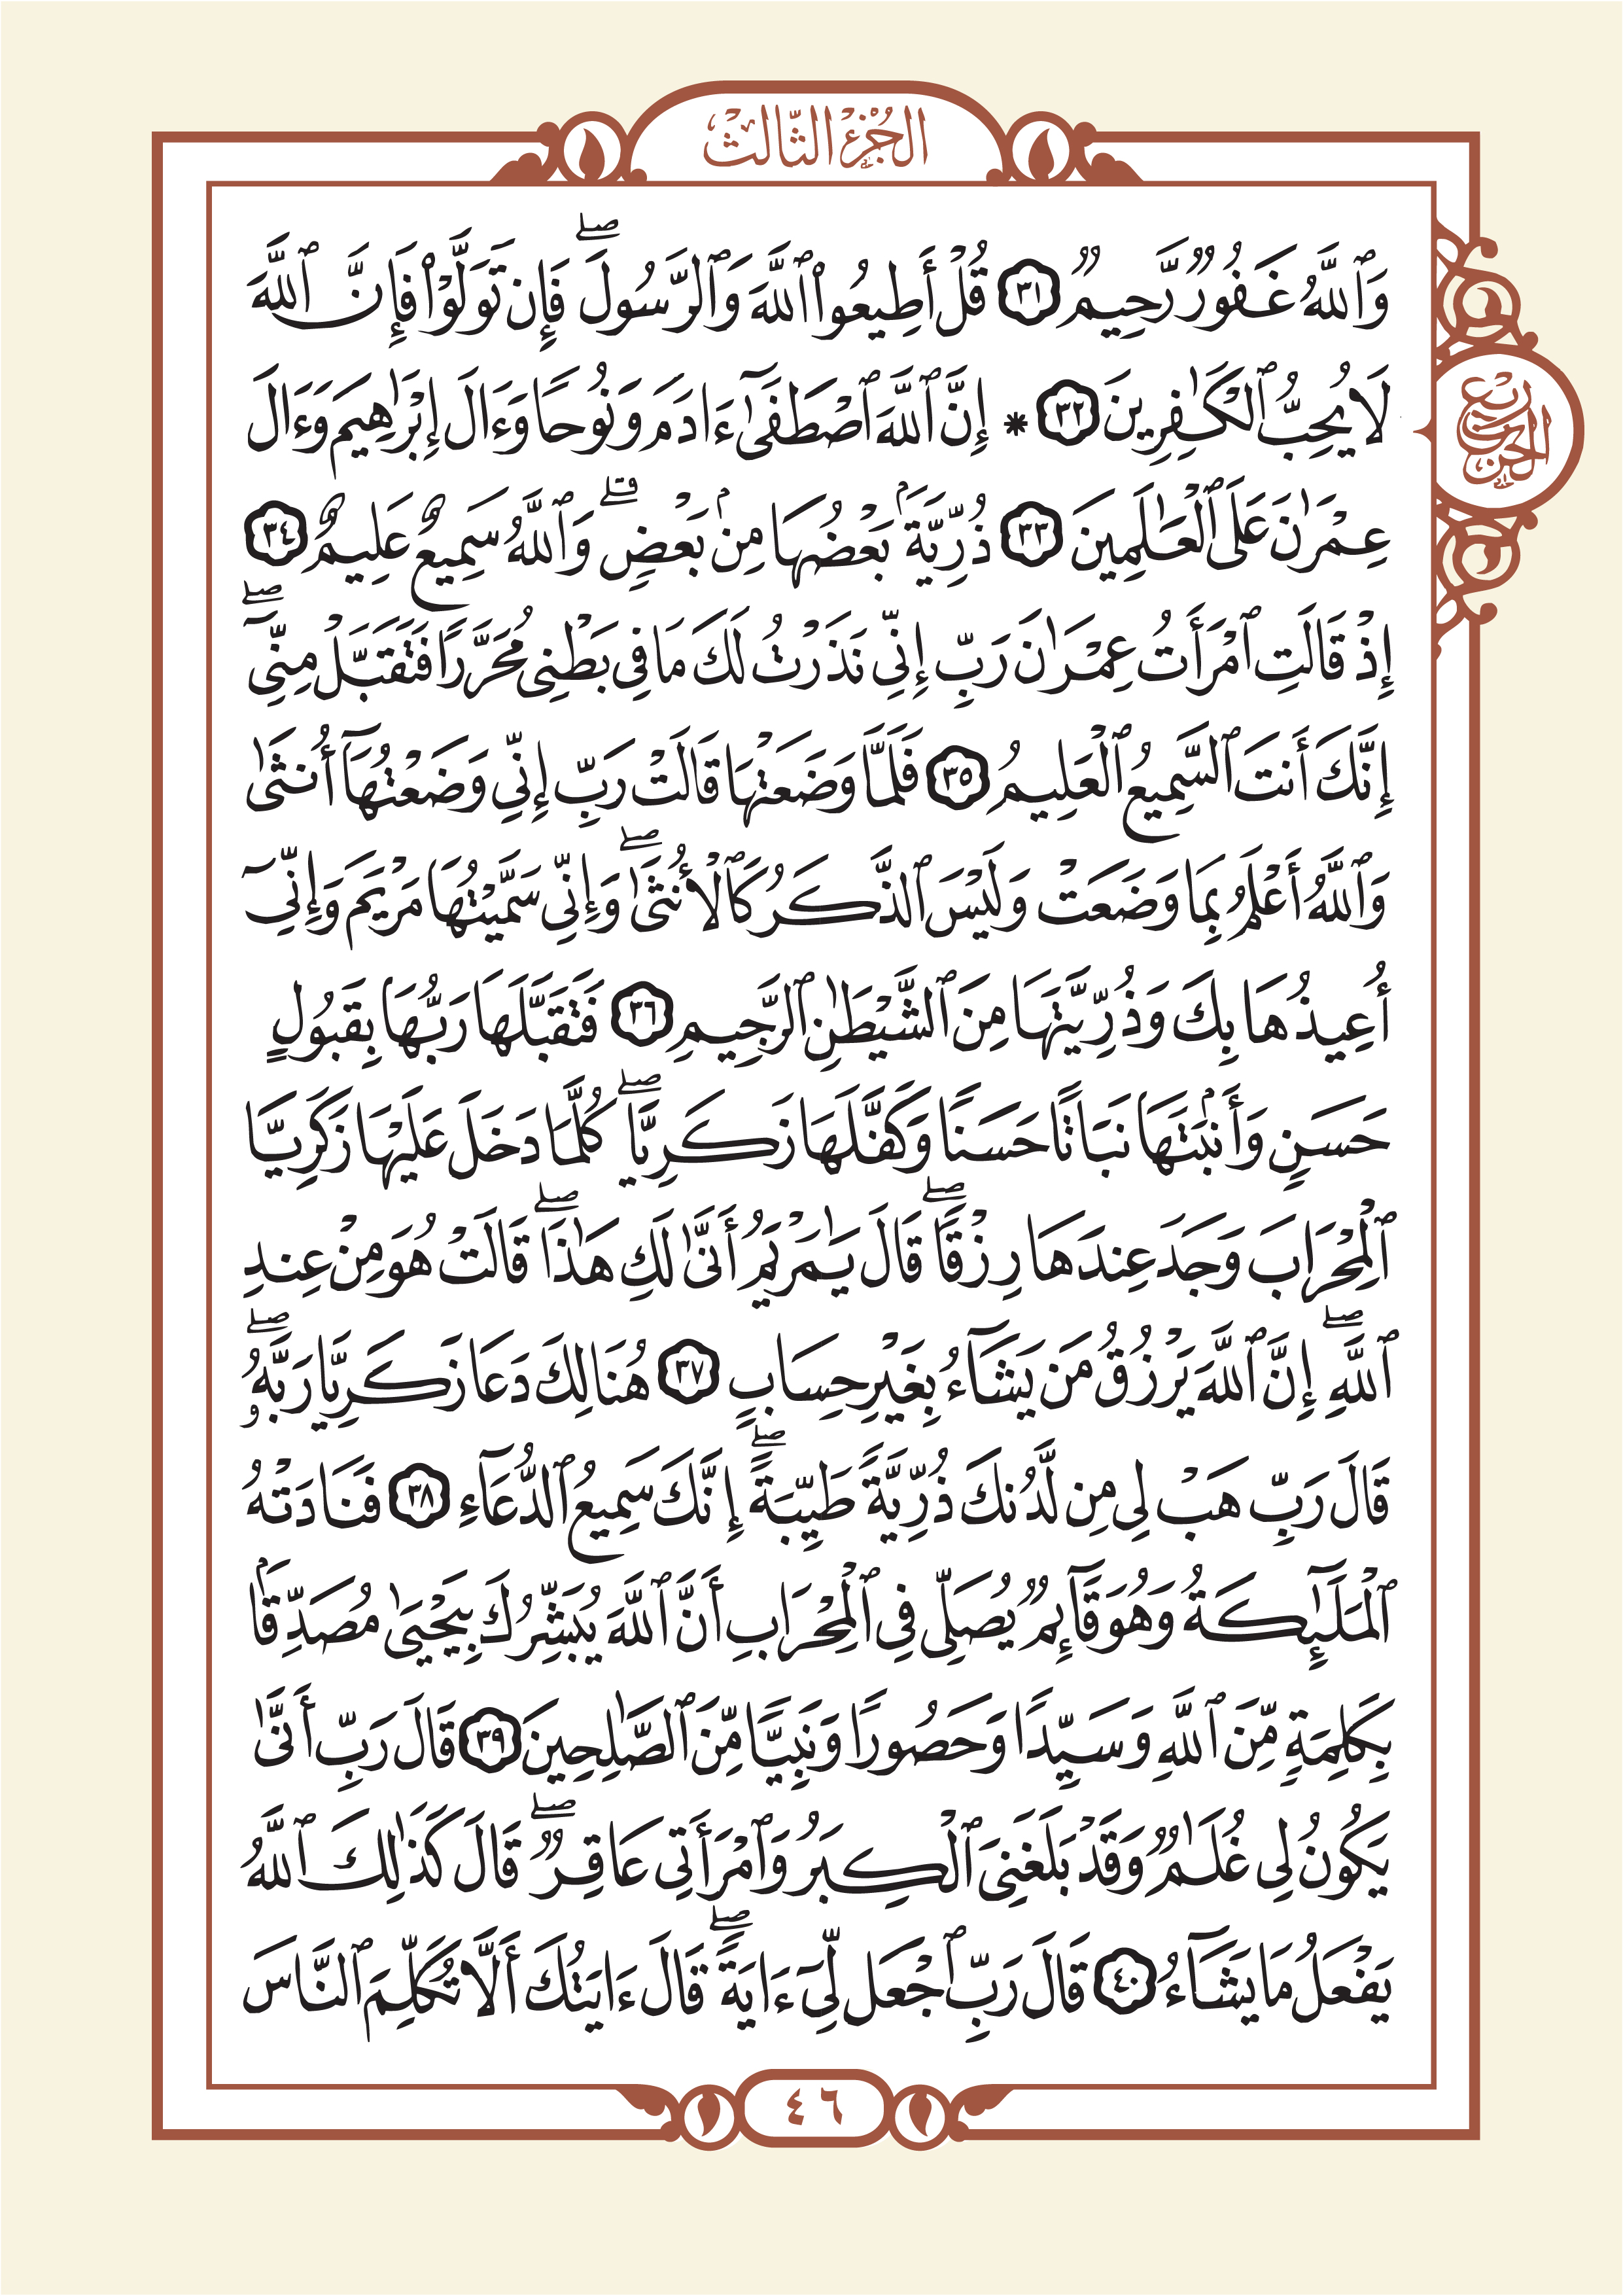 الجزء الثالث
وَٱللَّهُ غَفُورٌ رَّحِيمٌ ٣١ قُلْ أَطِيعُوا۟ ٱللَّهَ وَٱلرَّسُولَ ۖ فَإِن تَوَلَّوْا۟ فَإِنَّ ٱللَّهَ
لَا يُحِبُّ ٱلْكَٰفِرِينَ ٣٢ * إِنَّ ٱللَّهَ ٱصْطَفَىٰٓ ءَادَمَ وَنُوحًا وَءَالَ إِبْرَٰهِيمَ وَءَالَ
ربع الحزب
عِمْرَٰنَ عَلَى ٱلْعَٰلَمِينَ ٣٣ ذُرِّيَّةَۢ بَعْضُهَا مِنۢ بَعْضٍ ۗ وَٱللَّهُ سَمِيعٌ عَلِيمٌ ٣٤
إِذْ قَالَتِ ٱمْرَأَتُ عِمْرَٰنَ رَبِّ إِنِّي نَذَرْتُ لَكَ مَا فِي بَطْنِي مُحَرَّرًا فَتَقَبَّلْ مِنِّيٓ ۖ
إِنَّكَ أَنتَ ٱلسَّمِيعُ ٱلْعَلِيمُ ٣٥ فَلَمَّا وَضَعَتْهَا قَالَتْ رَبِّ إِنِّي وَضَعْتُهَآ أُنثَىٰ
وَٱللَّهُ أَعْلَمُ بِمَا وَضَعَتْ وَلَيْسَ ٱلذَّكَرُ كَٱلْأُنثَىٰ ۖ وَإِنِّي سَمَّيْتُهَا مَرْيَمَ وَإِنِّيٓ
أُعِيذُهَا بِكَ وَذُرِّيَّتَهَا مِنَ ٱلشَّيْطَٰنِ ٱلرَّجِيمِ ٣٦ فَتَقَبَّلَهَا رَبُّهَا بِقَبُولٍ
حَسَنٍ وَأَنۢبَتَهَا نَبَاتًا حَسَنًا وَكَفَّلَهَا زَكَرِيَّا ۖ كُلَّمَا دَخَلَ عَلَيْهَا زَكَرِيَّا
ٱلْمِحْرَابَ وَجَدَ عِندَهَا رِزْقًا ۖ قَالَ يَٰمَرْيَمُ أَنَّىٰ لَكِ هَٰذَا ۖ قَالَتْ هُوَ مِنْ عِندِ
ٱللَّهِ ۖ إِنَّ ٱللَّهَ يَرْزُقُ مَن يَشَآءُ بِغَيْرِ حِسَابٍ ٣٧ هُنَالِكَ دَعَا زَكَرِيَّا رَبَّهُۥ ۖ
قَالَ رَبِّ هَبْ لِي مِن لَّدُنكَ ذُرِّيَّةً طَيِّبَةً ۖ إِنَّكَ سَمِيعُ ٱلدُّعَآءِ ٣٨ فَنَادَتْهُ
ٱلْمَلَٰٓئِكَةُ وَهُوَ قَآئِمٌ يُصَلِّي فِي ٱلْمِحْرَابِ أَنَّ ٱللَّهَ يُبَشِّرُكَ بِيَحْيَىٰ مُصَدِّقَۢا
بِكَلِمَةٍ مِّنَ ٱللَّهِ وَسَيِّدًا وَحَصُورًا وَنَبِيًّا مِّنَ ٱلصَّٰلِحِينَ ٣٩ قَالَ رَبِّ أَنَّىٰ
يَكُونُ لِي غُلَٰمٌ وَقَدْ بَلَغَنِيَ ٱلْكِبَرُ وَٱمْرَأَتِي عَاقِرٌ ۖ قَالَ كَذَٰلِكَ ٱللَّهُ
يَفْعَلُ مَا يَشَآءُ ٤٠ قَالَ رَبِّ ٱجْعَل لِّيٓ ءَايَةً ۖ قَالَ ءَايَتُكَ أَلَّا تُكَلِّمَ ٱلنَّاسَ
٤٦